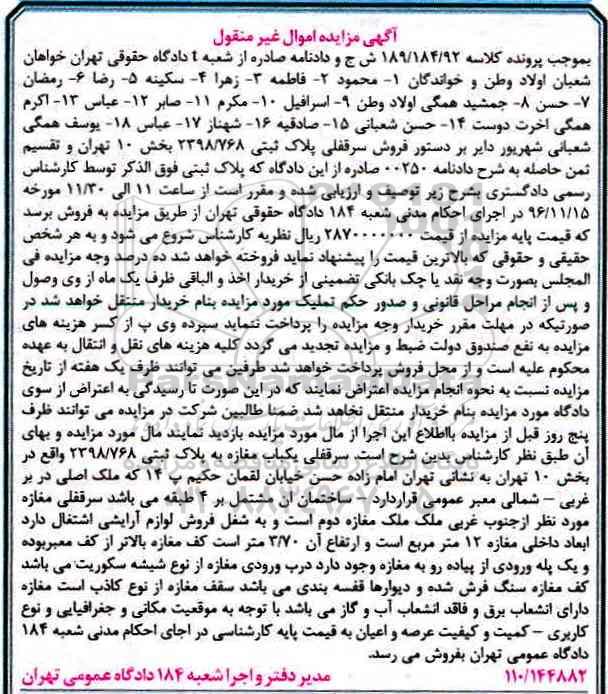 آگهی مزایده اموال غیر منقول
بموجب پرونده کلاسه ۱۸۹/۱۸۴/۹۲ ش ج و دادنامه صادره از شعبه t دادگاه حقوقی تهران خواهان
شعبان اولاد وطن و خواندگان ۱- محمود ۲- فاطمه ۳- زهرا ۴- سکینه ۵- رضا ۶- رمضان
۷- حسن ۸- جمشید همگی اولاد وطن ۹- اسرافیل ۱۰- مکرم ۱۱- صابر ۱۲- عباس ۱۳- اکرم
همگی اخرت دوست ۱۴- حسن شعبانی ۱۵- صادقیه ۱۶- شهناز ۱۷- عباس ۱۸- یوسف همگی
شعبانی شهریور دایر بر دستور فروش سرقفلی پلاک ثبتی ۲۳۹۸/۷۶۸ بخش ۱۰ تهران و تقسیم
ثمن حاصله به شرح دادنامه ۰۰۲۵۰ صادره از این دادگاه که پلاک ثبتی فوق الذکر توسط کارشناس
رسمی دادگستری بشرح زیر توصیف و ارزیابی شده و مقرر است از ساعت ۱۱ الی ۱۱/۳۰ مورخه
۹۶/۱۱/۱۵ در اجرای احکام مدنی شعبه ۱۸۴ دادگاه حقوقی تهران از طریق مزایده به فروش برسد
که قیمت پایه مزایده از قیمت ۲۸۷۰۰۰۰۰۰۰ ریال نظریه کارشناس شروع می شود و به هر شخص
حقیقی و حقوقی که بالاترین قیمت را پیشنهاد نماید فروخته خواهد شد ده درصد وجه مزایده فی
المجلس بصورت وجه نقد یا چک بانکی تضمینی از خریدار اخذ و الباقی ظرف یک ماه از وی وصول
و پس از انجام مراحل قانونی و صدور حکم تملیک مورد مزایده بنام خریدار منتقل خواهد شد در
صورتیکه در مهلت مقرر خریدار وجه مزایده را پرداخت ننماید سپرده وی پ از کسر هزینه های
مزایده به نفع صندوق دولت ضبط و مزایده تجدید می گردد کلیه هزینه های نقل و انتقال به عهده
محکوم علیه است و از محل فروش پرداخت خواهد شد طرفین می توانند ظرف یک هفته از تاریخ
مزایده نسبت به نحوه انجام مزایده اعتراض نمایند که در این صورت تا رسیدگی به اعتراض از سوی
دادگاه مورد مزایده بنام خریدار منتقل نخاهد شد ضمنا طالبین شرکت در مزایده می توانند ظرف
پنج روز قبل از مزایده بااطلاع این اجرا از مال مورد مزایده بازدید نمایند مال مورد مزایده و بهای
آن طبق نظر کارشناس بدین شرح است. سرقفلی یکباب مغازه به پلاک ثبتی ۲۳۹۸/۷۶۸ واقع در
بخش ۱۰ تهران به نشانی تهران امام زاده حسن خیابان لقمان حکیم پ ۱۴ که ملک اصلی در بر
غربی – شمالی معبر عمومی قراردارد – ساختمان آن مشتمل بر ۴ طبقه می باشد سرقفلی مغازه
مورد نظر ازجنوب غربی ملک ملک مغازه دوم است و به شغل فروش لوازم آرایشی اشتغال دارد
ابعاد داخلی مغازه ۱۲ متر مربع است و ارتفاع آن ۳/۷۰ متر است کف مغازه بالاتر از کف معبربوده
و یک پله ورودی از پیاده رو به مغازه وجود دارد درب ورودی مغازه از نوع شیشه سکوریت می باشد
کف مغازه سنگ فرش شده و دیوارها قفسه بندی می باشد سقف مغازه از نوع کاذب است مغازه
دارای انشعاب برق و فاقد انشعاب آب و گاز می باشد با توجه به موقعیت مکانی و جغرافیایی و نوع
کاربری – کمیت و کیفیت عرصه و اعیان به قیمت پایه کارشناسی در اجای احکام مدنی شعبه ۱۸۴
دادگاه عمومی تهران بفروش می رسد.
۱۱۰/۱۴۴۸۸۲ مدیر دفتر و اجرا شعبه ۱۸۴ دادگاه عمومی تهران